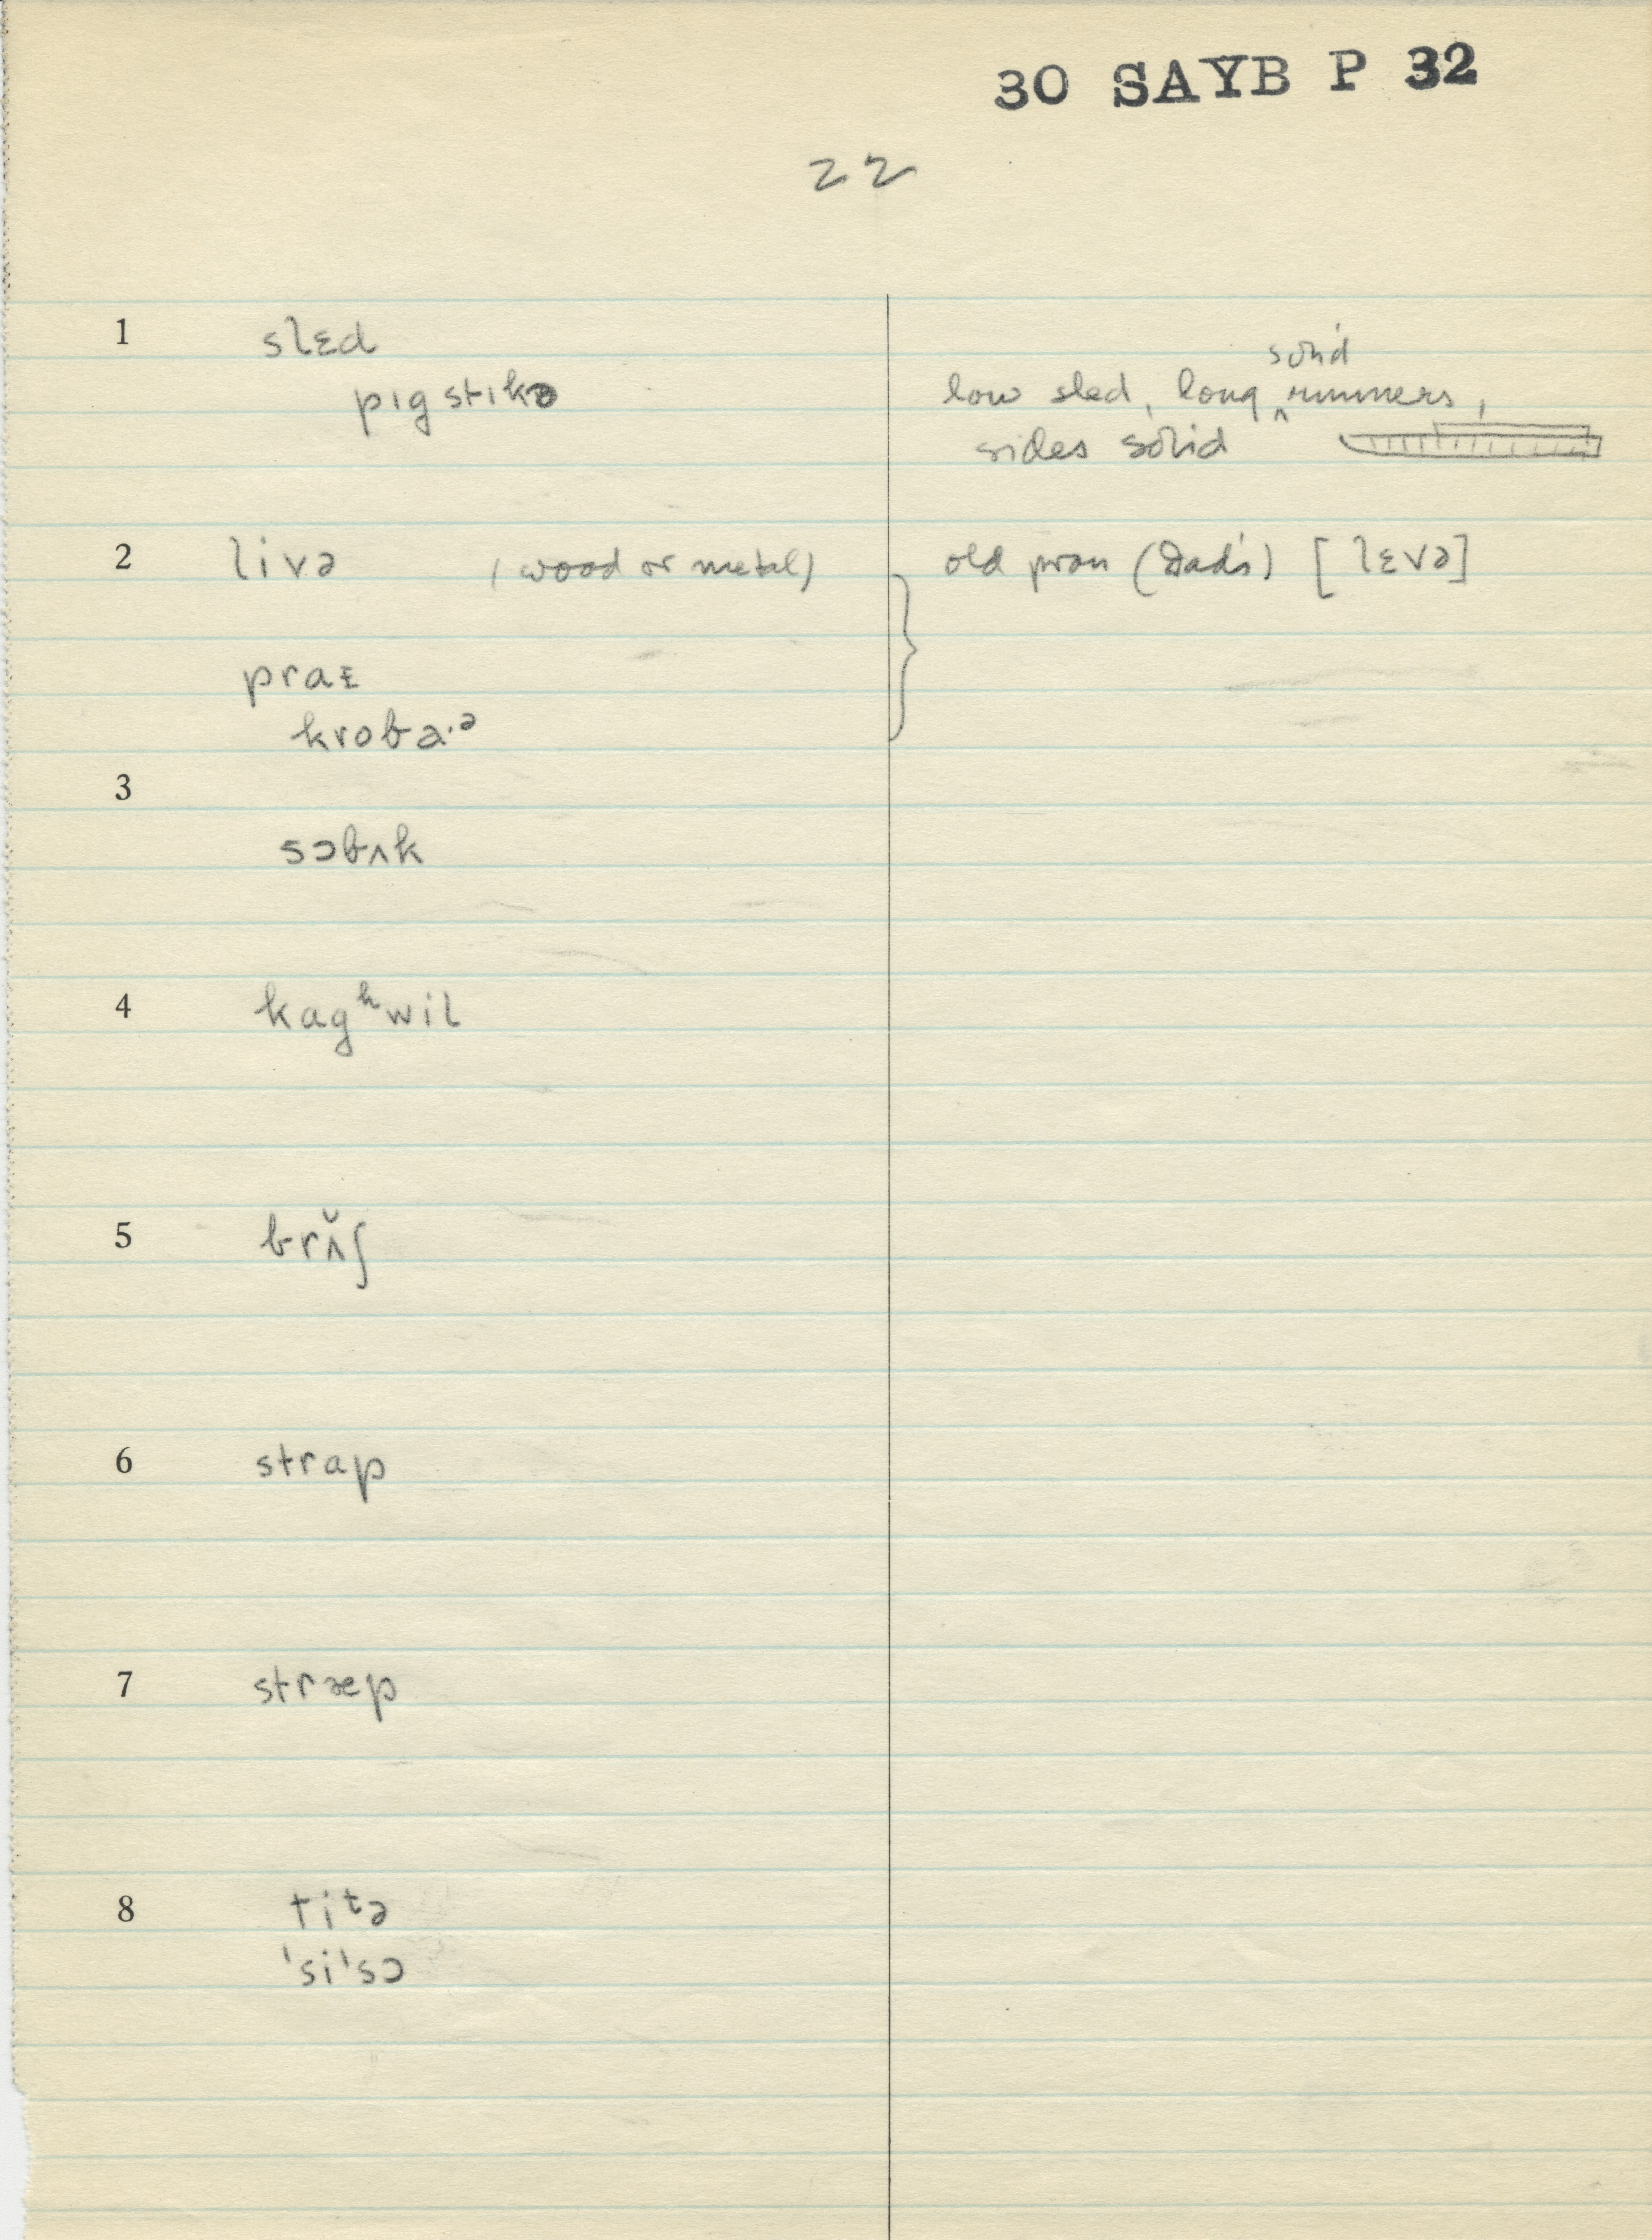 30 SAYB P 32
22
1 slɛd
solid
pɪg stɪkə low sled, long ^ runners,
sides solid
2 livə (wood or metal) old pron (Dad's) [lɛvə]
praɪ
kroba·ᵊ
3
sɔbʌk
4 kagʰwil
5 brʌ̆ʃ
6 strap
7 stræp
8 titə
'si'sɔ